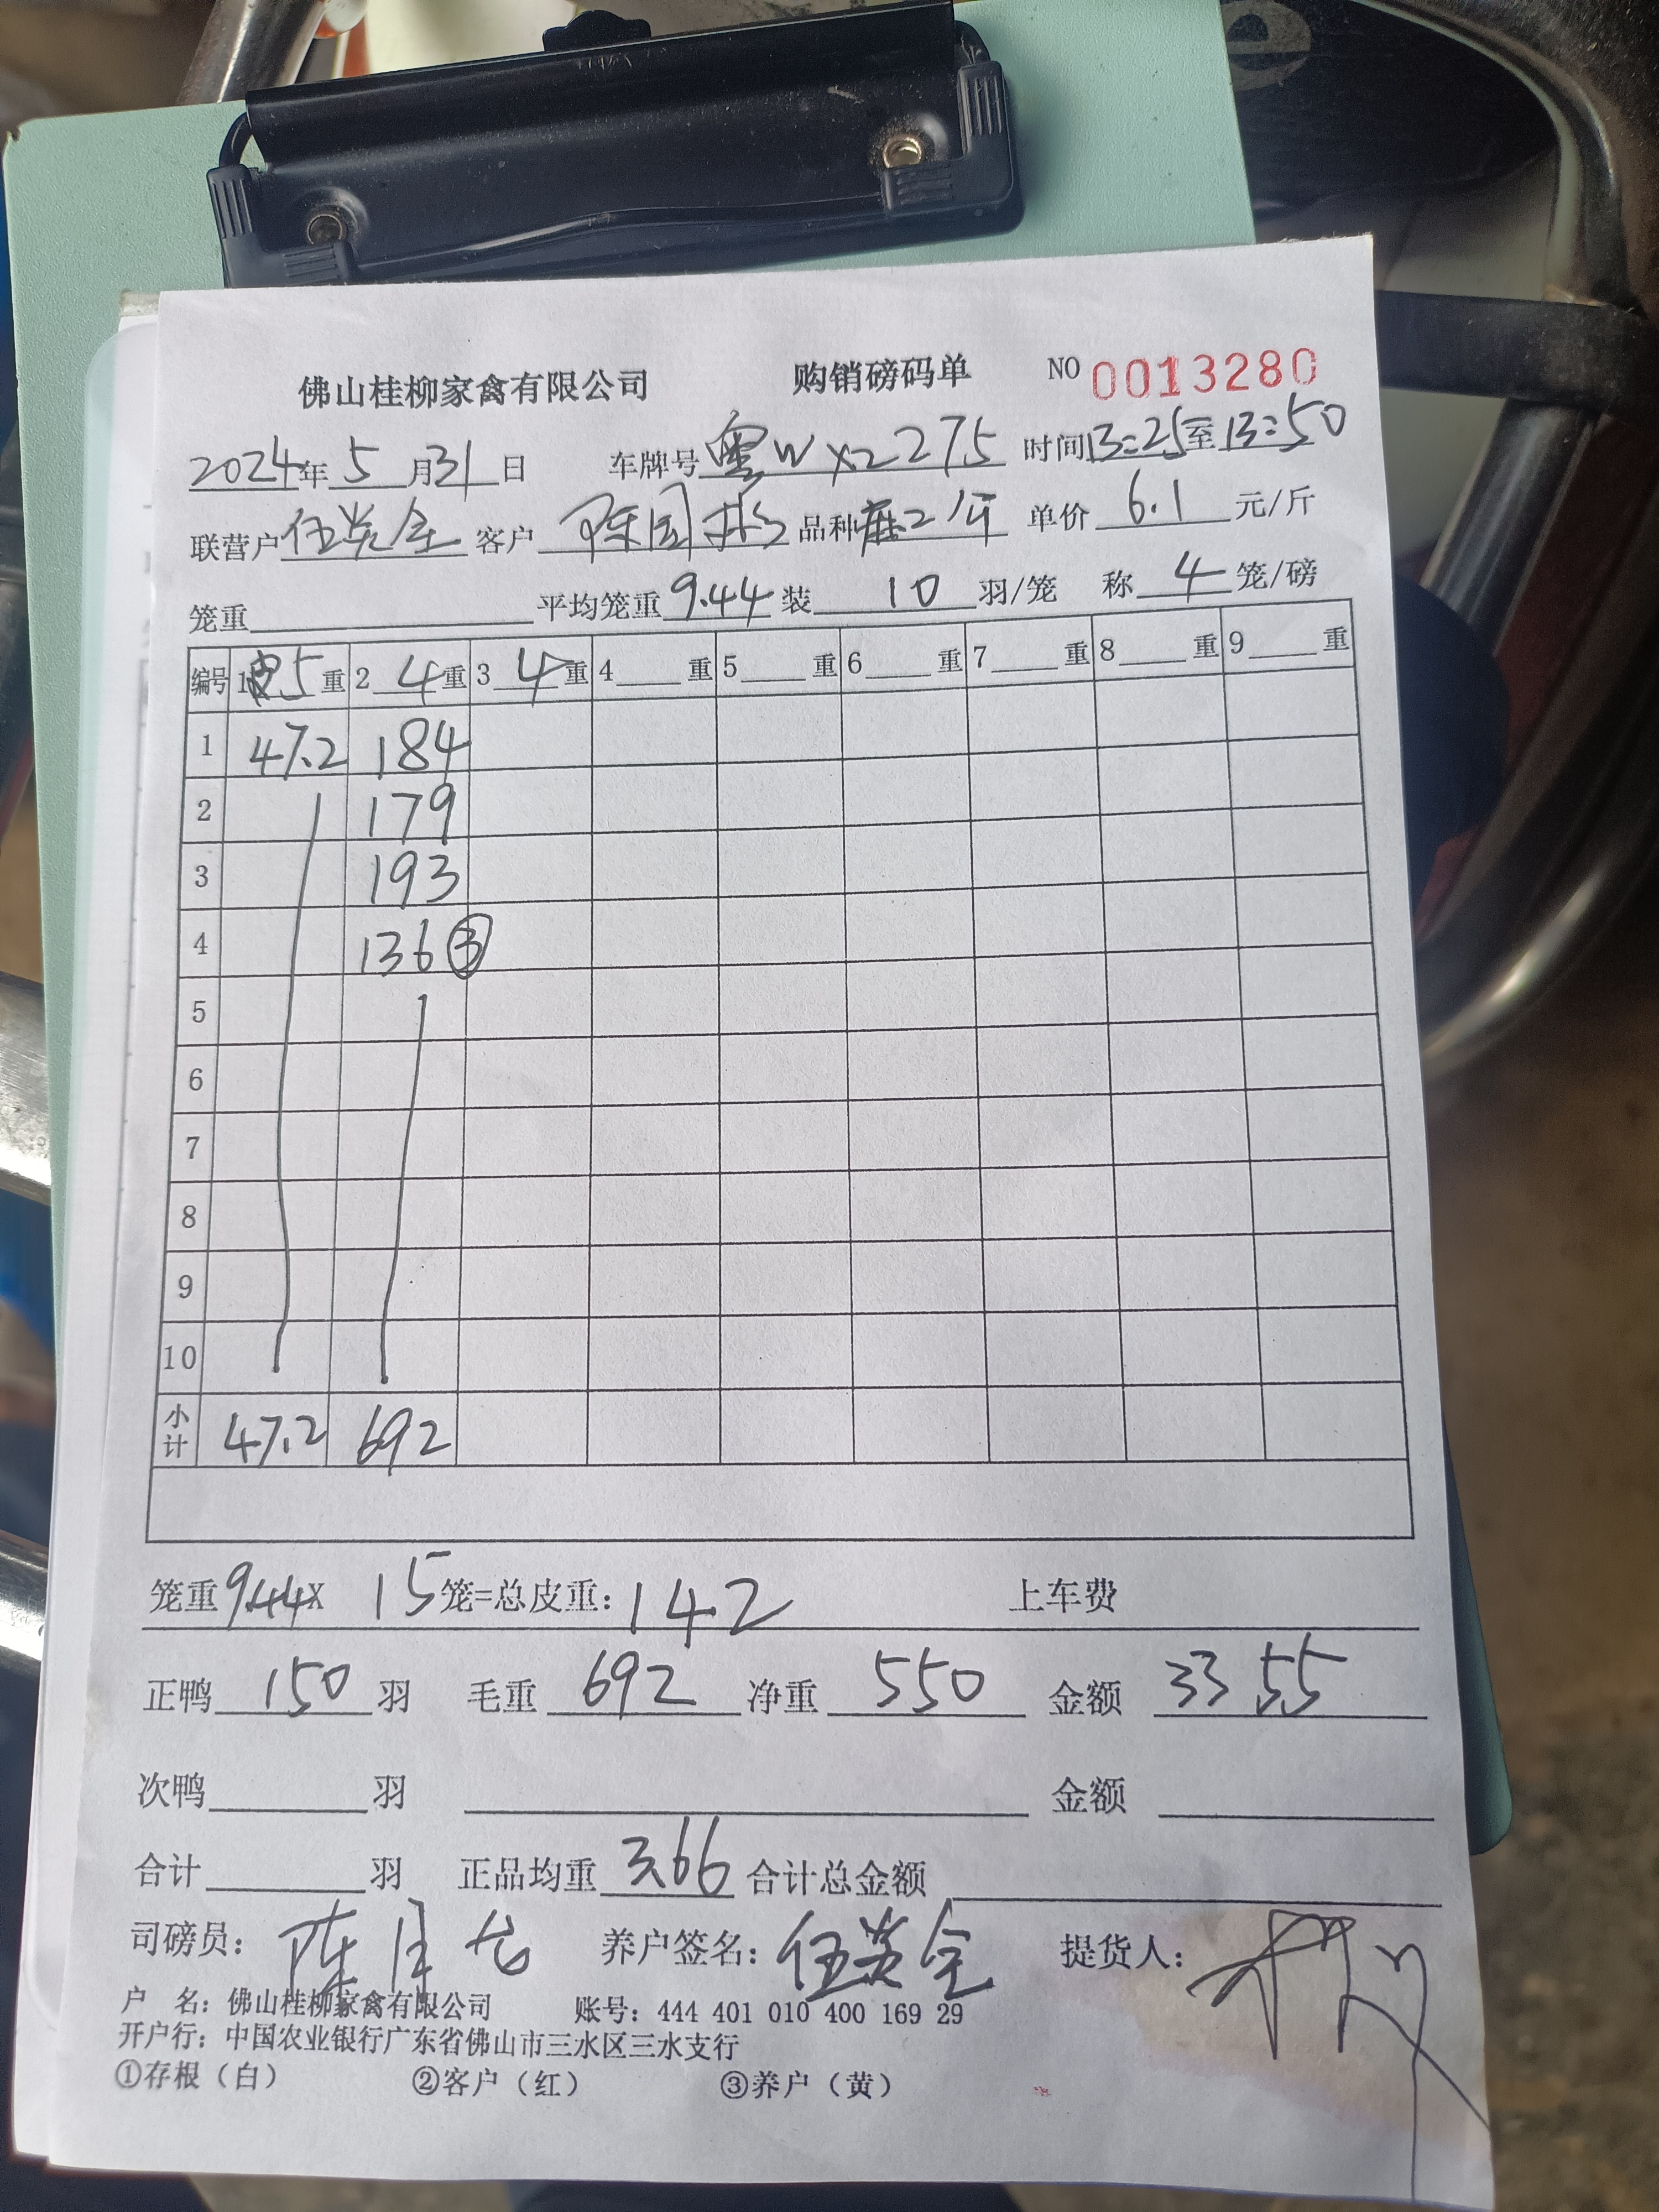 e
佛山桂柳家禽有限公司 购销磅码单 NO 0013280
2024年 5 月 31 日 车牌号 粤W X2275 时间 13:25 至 13:50
联营户 伍炎全 客户 陈国 品种 麻2 单价 6.1 元/斤
笼重 平均笼重 9.44 装 10 羽/笼 称 4 笼/磅
编号 1皮5重 2 4 重 3 4 重 4 重 5 重 6 重 7 重 8 重 9 重
1 47.2 184
2 179
3 193
4 136 ③
5
6
7
8
9
10
小计 47.2 692
笼重 9.44 X 15 笼=总皮重: 142 上车费
正鸭 150 羽 毛重 692 净重 550 金额 3355
次鸭 羽 金额
合计 羽 正品均重 3.66 合计总金额
司磅员: 陈月 养户签名: 伍炎全 提货人:
户 名: 佛山桂柳家禽有限公司 账号: 444 401 010 400 169 29
开户行: 中国农业银行广东省佛山市三水区三水支行
①存根（白） ②客户（红） ③养户（黄）